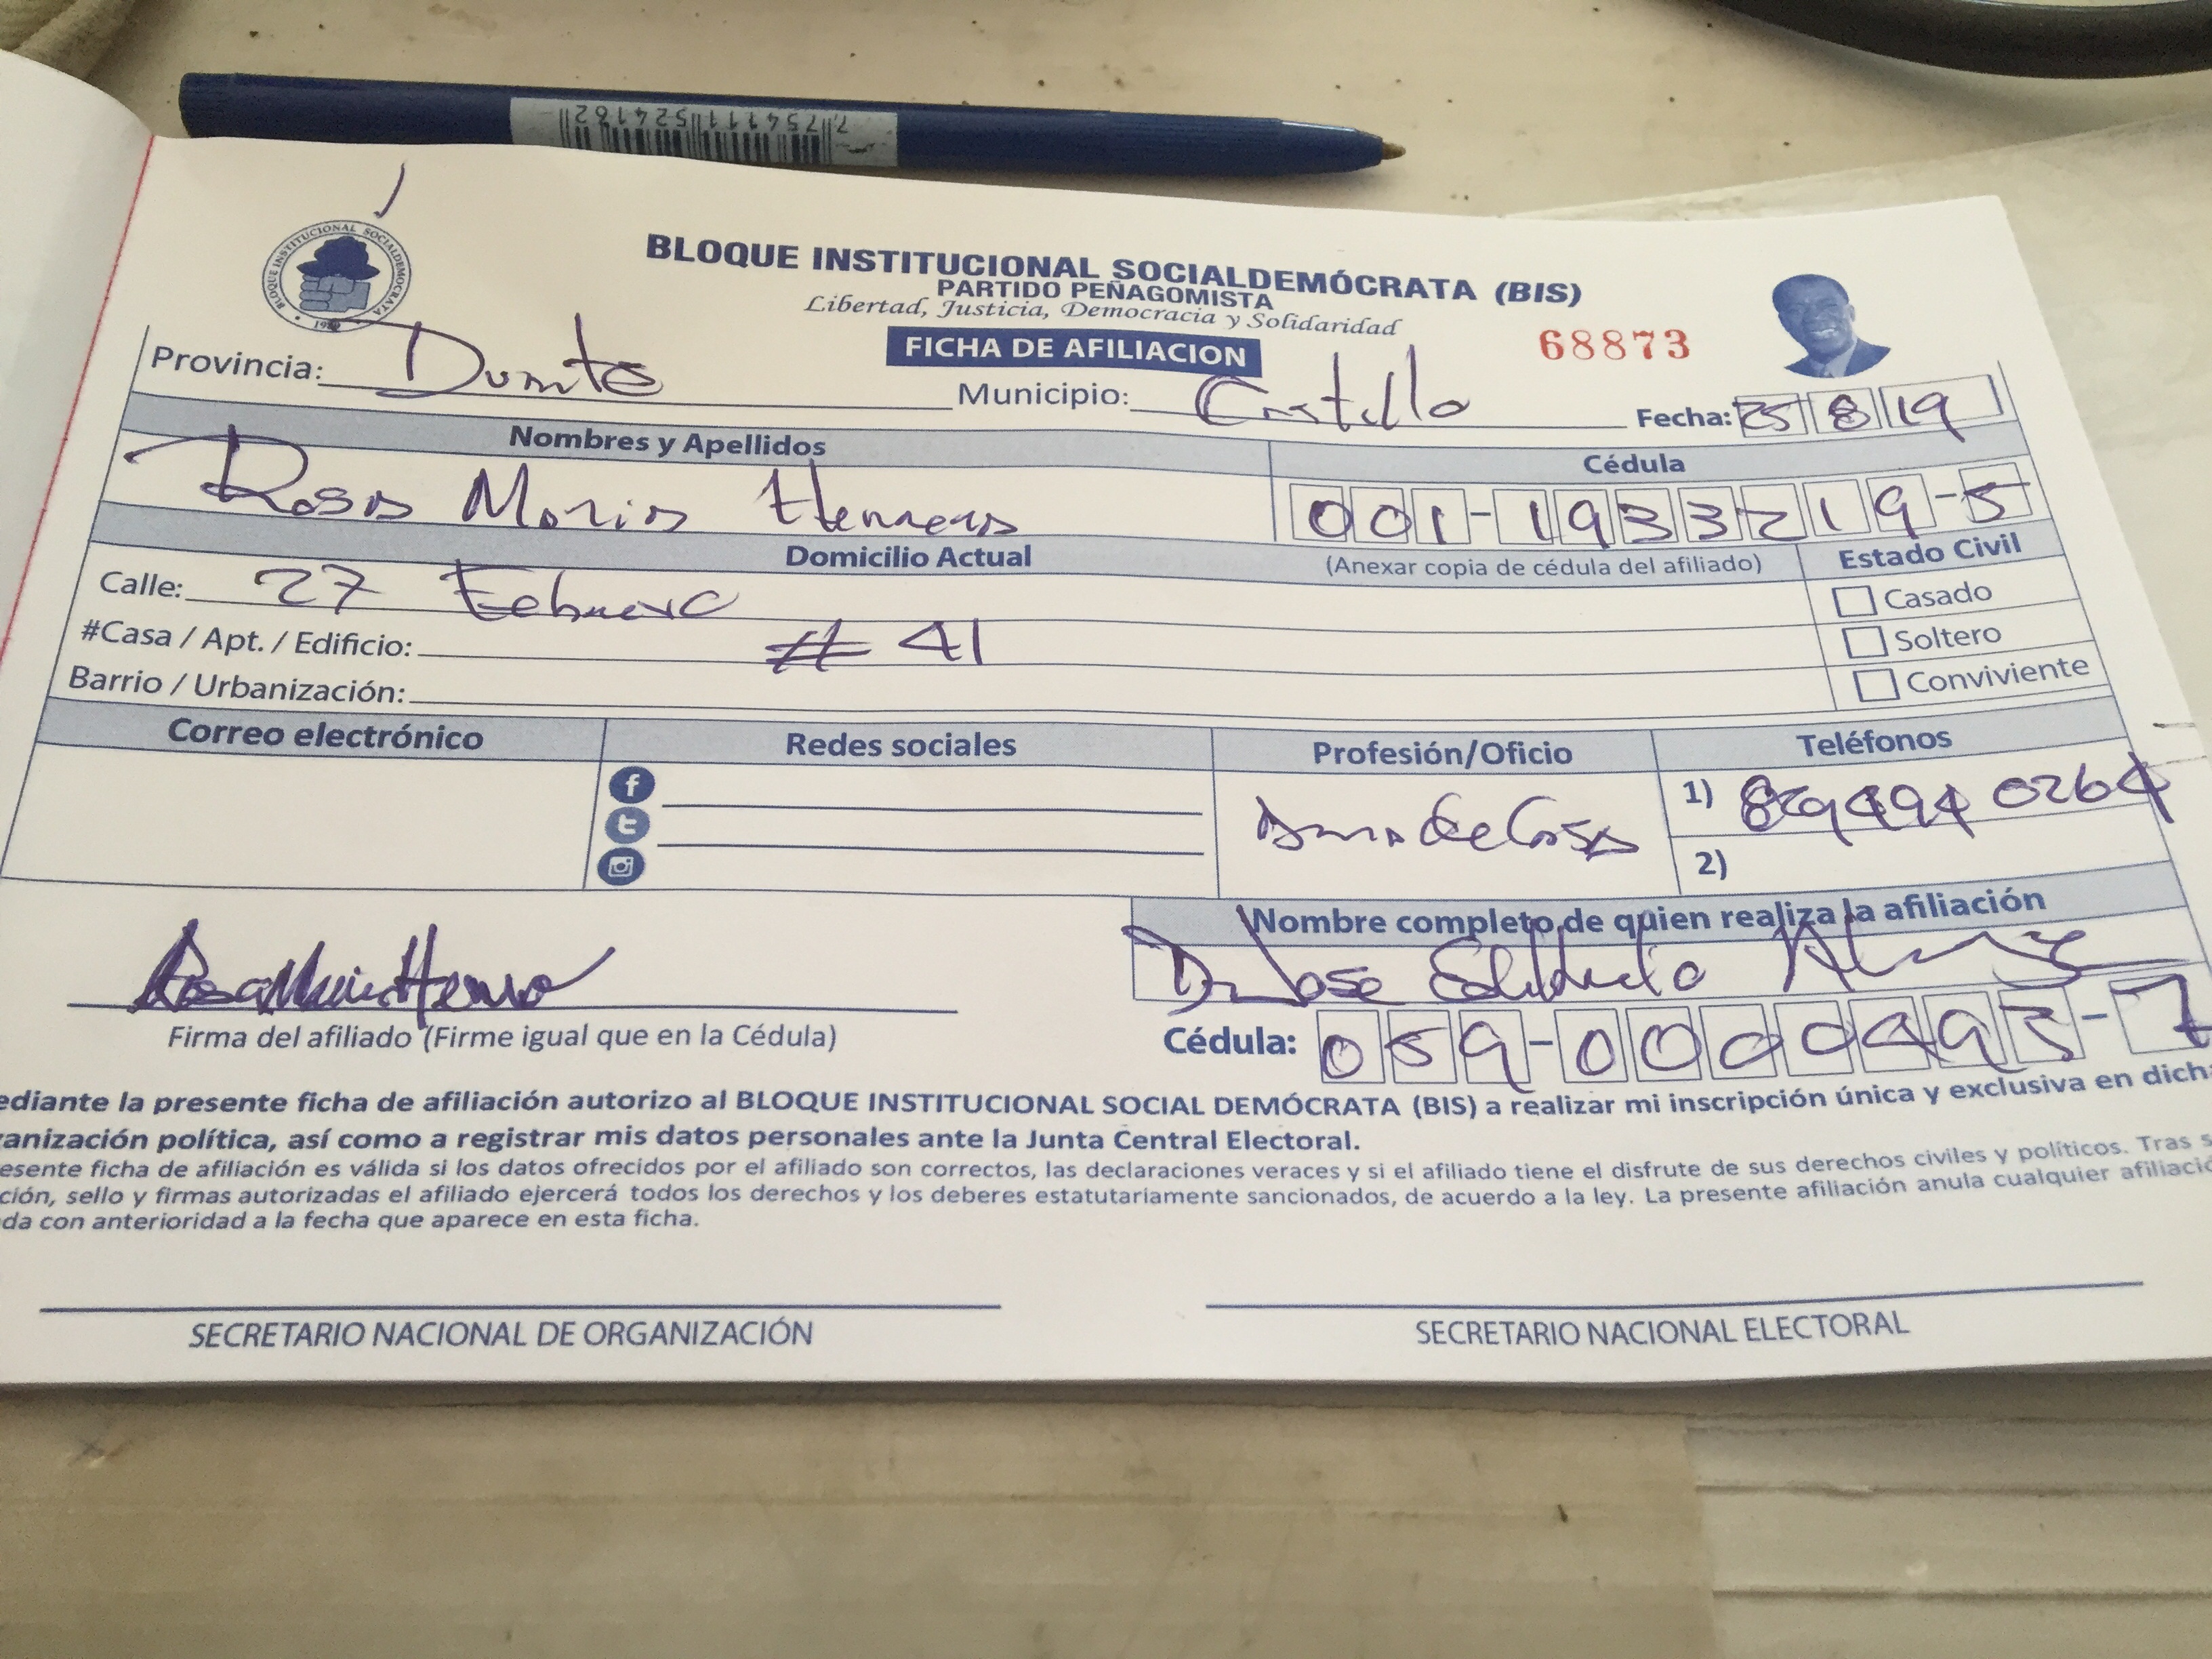 7 754111 524162
BLOQUE INSTITUCIONAL SOCIALDEMOCRATA
BLOQUE INSTITUCIONAL SOCIALDEMÓCRATA (BIS)
PARTIDO PEÑAGOMISTA
Libertad, Justicia, Democracia y Solidaridad
FICHA DE AFILIACION
68873
Provincia: Duarte Municipio: Castillo Fecha: 25 8 19
Nombres y Apellidos Cédula
Rosa Maria Herrera 001-1933219-5
Domicilio Actual (Anexar copia de cédula del afiliado) Estado Civil
Calle: 27 Febrero Casado
#Casa / Apt. / Edificio: # 41 Soltero
Barrio / Urbanización: Conviviente
Correo electrónico Redes sociales Profesión/Oficio Teléfonos
Ama de Casa 1) 829 494 0264
2)
Nombre completo de quien realiza la afiliación
Rosa Maria Herrera Dr Jose
Firma del afiliado (Firme igual que en la Cédula) Cédula: 059-0000493-7
ediante la presente ficha de afiliación autorizo al BLOQUE INSTITUCIONAL SOCIAL DEMÓCRATA (BIS) a realizar mi inscripción única y exclusiva en dich
anización política, así como a registrar mis datos personales ante la Junta Central Electoral.
esente ficha de afiliación es válida si los datos ofrecidos por el afiliado son correctos, las declaraciones veraces y si el afiliado tiene el disfrute de sus derechos civiles y políticos. Tras s
ción, sello y firmas autorizadas el afiliado ejercerá todos los derechos y los deberes estatutariamente sancionados, de acuerdo a la ley. La presente afiliación anula cualquier afiliació
da con anterioridad a la fecha que aparece en esta ficha.
SECRETARIO NACIONAL DE ORGANIZACIÓN SECRETARIO NACIONAL ELECTORAL